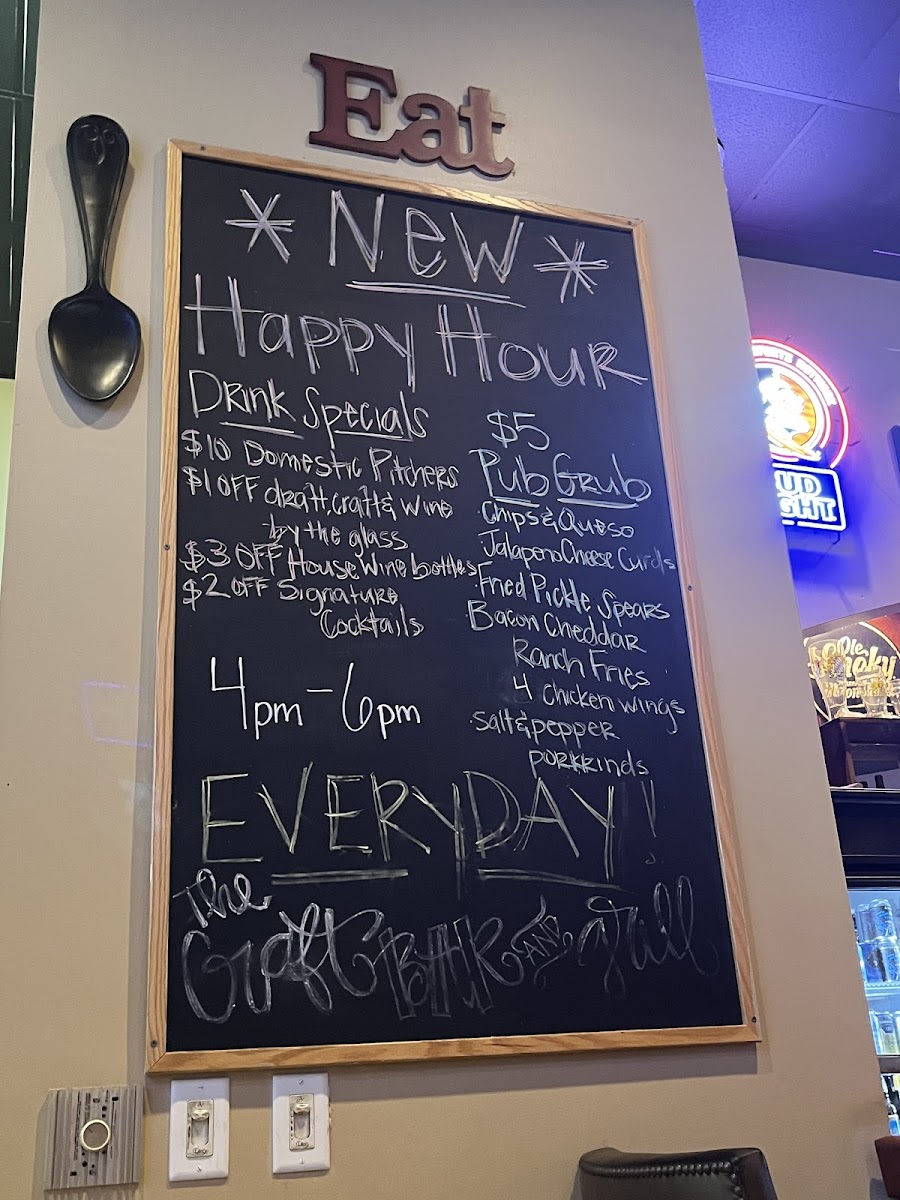 Eat
* New *
Happy Hour
Drink Specials
$10 Domestic Pitchers
$1 OFF draft, craft & wine
by the glass
$3 OFF House Wine bottles
$2 OFF Signature
Cocktails
4pm-6pm
$5
Pub Grub
Chips & Queso
Jalapeno Cheese Curds
Fried Pickle Spears
Bacon Cheddar
Ranch Fries
4 chicken wings
Salt & pepper
porkrinds
EVERYDAY!
The
Craft BAR AND grill
UD
GHT
Ole
Smoky